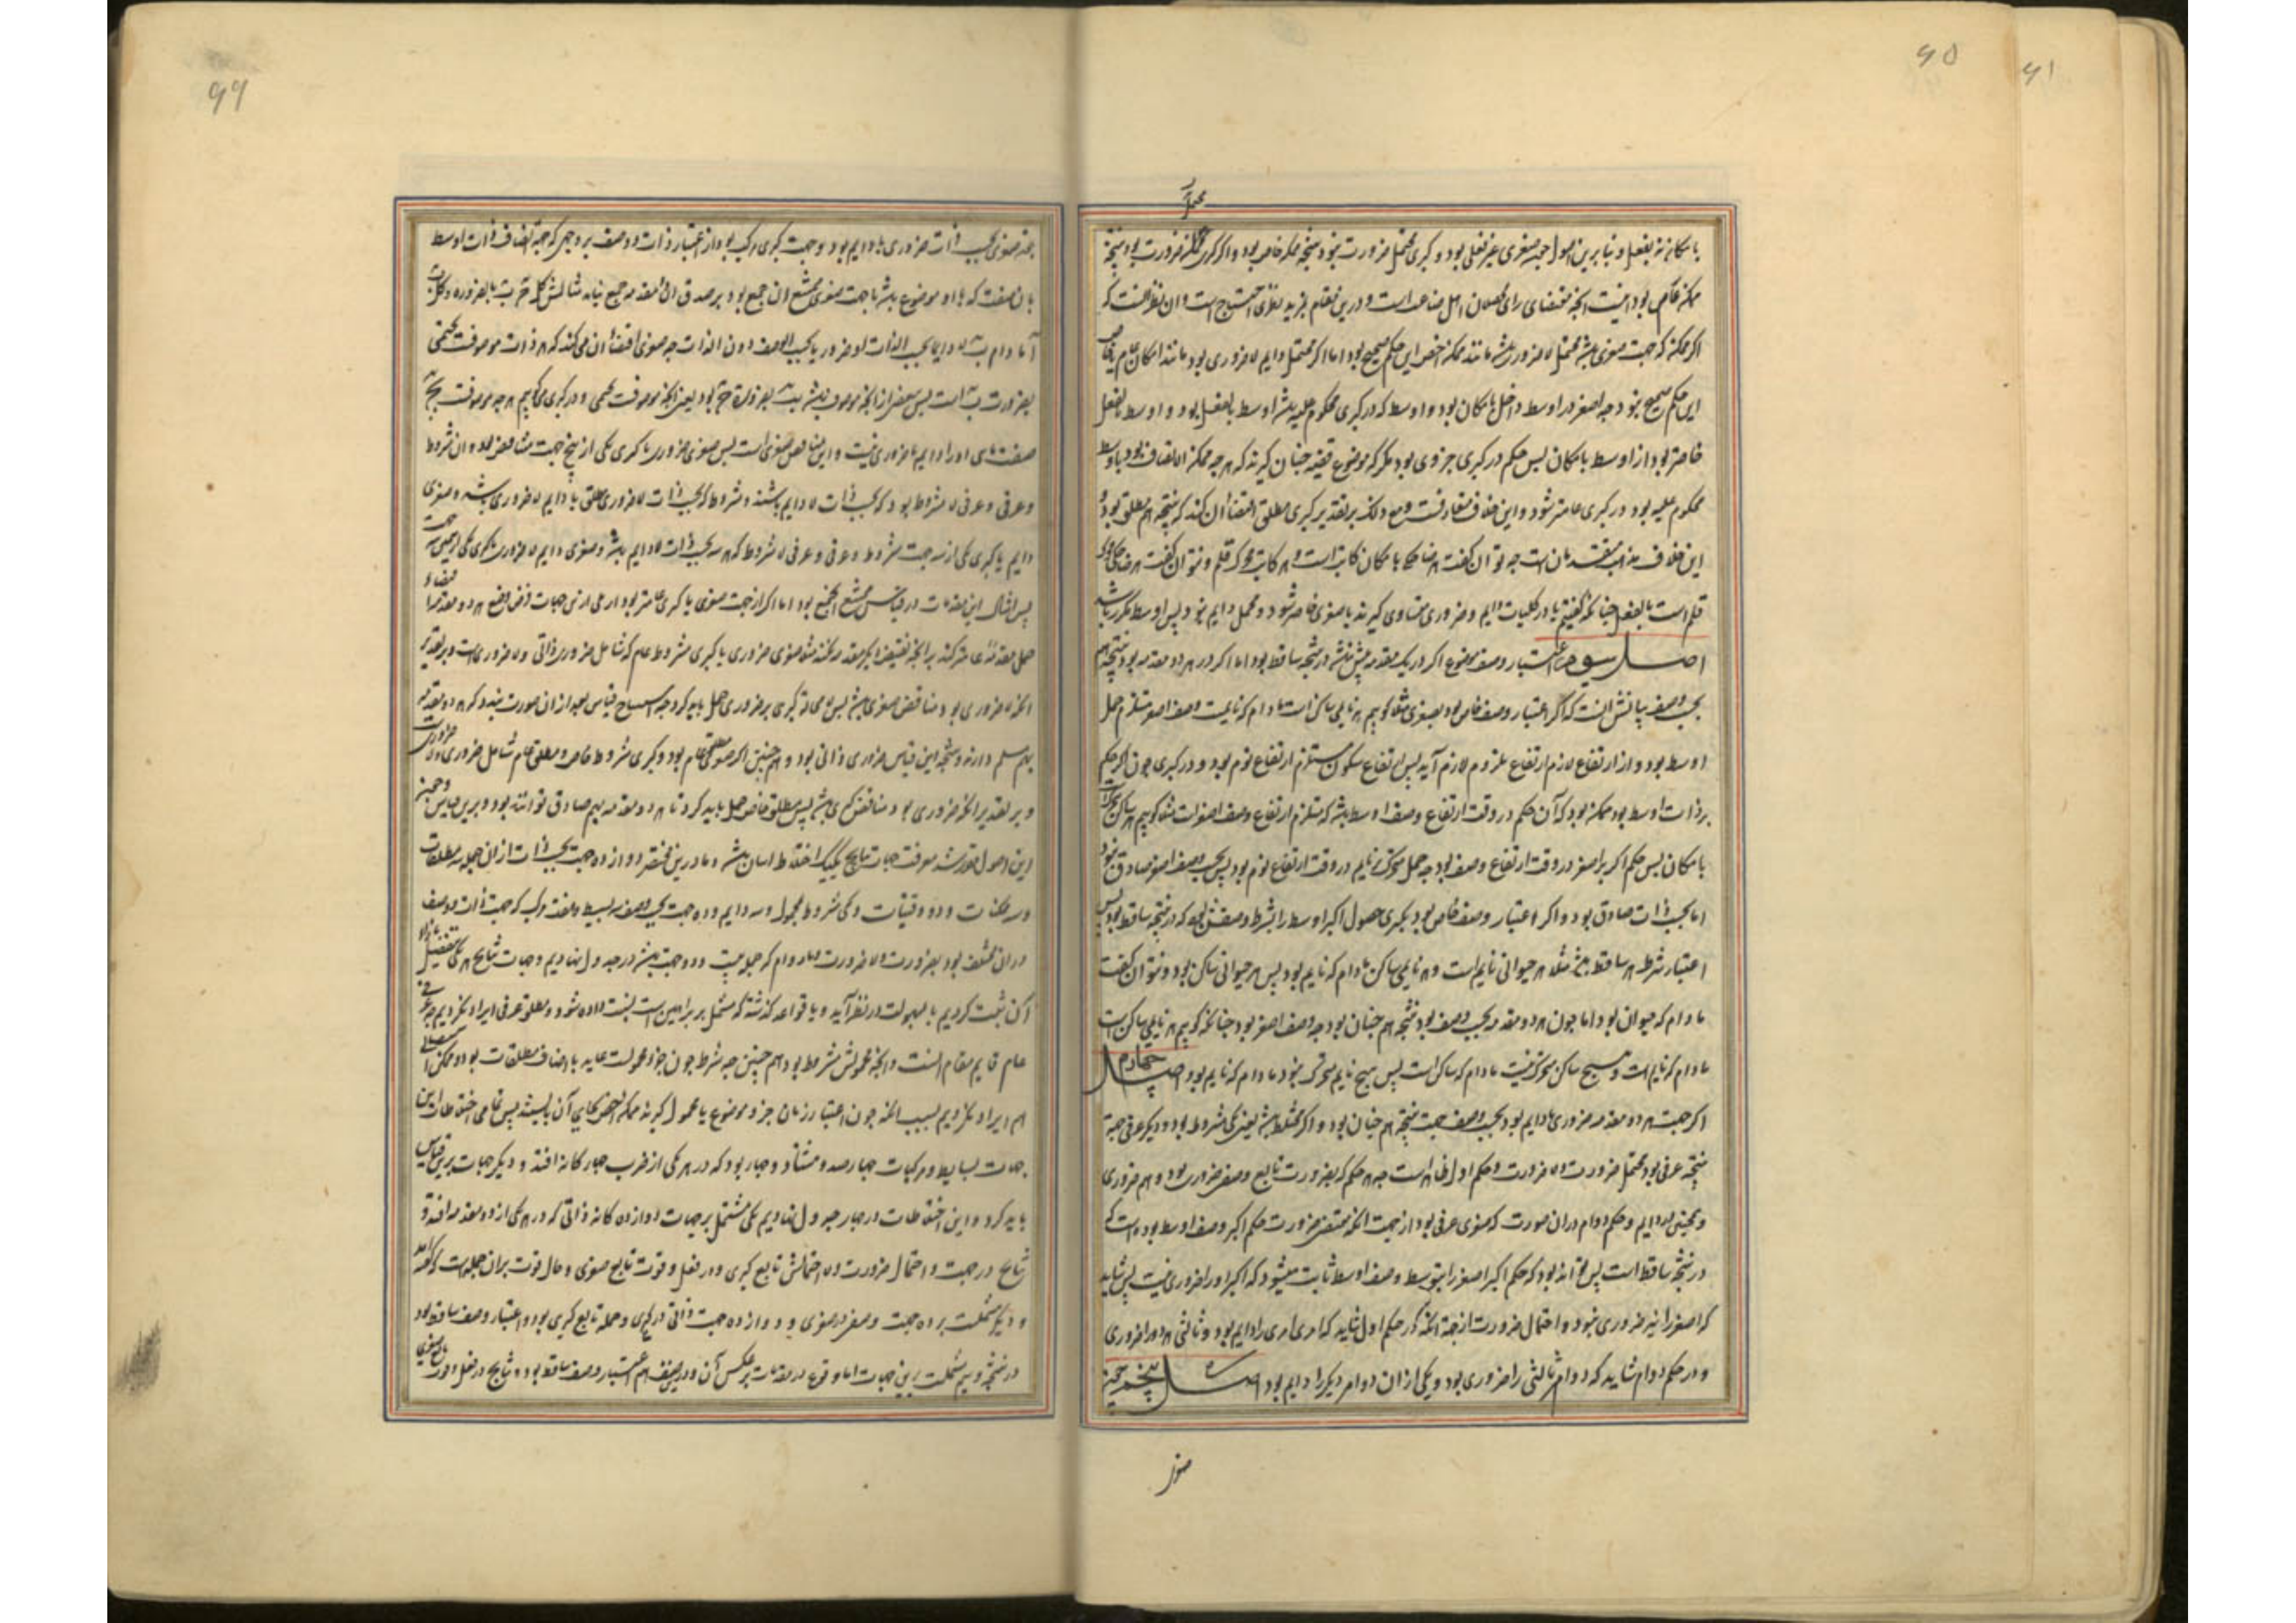 ۶۱
۶۵
محتمل
با مکان نه بفعل و بنا برین اصول جهة صغری غیر فعلی بود و کبری محتمل ضرورت نبود نتیجه ممکنه خاص بود و اگر کبری محتمل ضرورت بود نتیجه
ممکنه عام بود اینست آنچه مقتضای رای اهل صناعت است و درین مقام بمزید نظری احتیاج است و آن نظر آنست که
اگر ممکنه که جهت صغری باشد محتمل لا ضرورت باشد مانند ممکنه اخص این حکم صحیح بود اما اگر محتمل دایم لا ضروری بود مانند امکان عام یا خاص
این حکم صحیح نبود چه اصغر در اوسط داخل با مکان بود و اوسط که در کبری محکوم علیه باشد اوسط بالفعل بود و اوسط بالفعل
خاصتر بود از اوسط با مکان پس حکم در کبری جزوی بود مگر که موضوع قضیه چنان گیرند که هر چه ممکن الاتصاف بود باوسط
محکوم علیه بود در کبری عامتر شود و این خلاف متعارفست و مع ذلک بر تقدیر کبری مطلق اقتضا آن کند که نتیجه هم مطلق بود و
این خلاف مذهب متقدمانست چه توان گفت هر ضاحکی با مکان کاتب است و هر کاتب محرک قلم و نتوان گفت هر ضاحکی محرک
قلم است بالفعل چنانکه گفتیم یا در کلیات دایم و ضروری متساوی گیرند یا صغری خاصه شود و محمل دایم نبود پس اوسط مکرر باشد
اصل سیوم اعتبار وصف موضوع اگر در یک مقدمه بیش نباشد در نتیجه ساقط بود اما اگر در هر دو مقدمه بود نتیجه هم
بحسب وصف بیانش آنست که اگر اعتبار وصف خاص بود بصغری مثلا گوییم هر نایمی ساکن است مادام که نایمست وصف اصغر مستلزم حمل
اوسط بود و از ارتفاع لازم ارتفاع ملزوم لازم آید پس ارتفاع سکون مستلزم ارتفاع نوم بود و در کبری چون اکبر حکم
بر ذات اوسط بود ممکنه بود که آن حکم در وقت ارتفاع وصف اوسط باشد که مستلزم ارتفاع وصف اصغر است مثلا گوییم هر ساکن متحرک است
با مکان پس حکم اکبر بر اصغر در وقت ارتفاع وصف بود چه حمل متحرک بر نایم در وقت ارتفاع نوم بود پس بحسب وصف اصغر صادق نبود
اما بحسب ذات صادق بود و اگر اعتبار وصف خاص بود بکبری حصول اکبر اوسط را بشرط وصفش بود که در نتیجه ساقط بود پس
اعتبار شرط هم ساقط باشد مثلا هر حیوانی نایم است و هر نایمی ساکن مادام که نایم بود پس هر حیوانی ساکن بود و نتوان گفت
مادام که حیوان بود اما چون هر دو مقدمه بحسب وصف بود نتیجه هم چنان بود چه وصف اصغر بود چنانکه گوییم هر نایمی ساکن است
مادام که نایم است و هیچ ساکن متحرک نیست مادام که ساکن است پس هیچ نایم متحرک نبود مادام که نایم بود اصل چهارم
اگر جهت هر دو مقدمه ضروری یا دایم بود بحسب وصف جهت نتیجه هم چنان بود و اگر مختلط باشد یعنی یکی مشروط بود و دیگر عرفی جهة
نتیجه عرفی بود محتمل ضرورت و لا ضرورت و حکم اول ظاهر است چه هر حکم که بضرورت تابع وصف ضرورت بود هم ضروری
و همچنین در دایم و حکم دوام در آن صورت که صغری عرفی بود از جهت آنکه مقتضی ضرورت حکم اکبر وصف اوسط بوده است که
در نتیجه ساقط است پس تواند بود که حکم اکبر اصغر را بتوسط وصف اوسط ثابت میشود که اکبر او را ضروری نیست پس شاید
که اصغر را نیز ضروری نبود و احتمال ضرورت از جهة آنکه در حکم اول شاید که امری امری را دایم بود و ثالثی هر دو را ضروری
و در حکم دوام شاید که دوام ثالثی را ضروری بود و یکی از آن دو امر دیگر را دایم بود اصل پنجم جهة
صغر
۶۶
جهة صغری بحسب ذات ضروری یا دایم بود و جهت کبری مرکب بود از اعتبار ذات و وصف بر وجهی که جهة اتصاف ذات اوسط
بآن صفت که با او موضوع باشد با جهت صغری ممتنع الجمع بود بر صدق این مقدمه جمع نیاید مثالش کل ج ب بالضروره و کل ب
ا مادام ب لا دایما بحسب الذات او ضرور یا بحسب الوصف دون الذات چه صغری اقتضاء آن می کند که هر ذات موصوفست بجیمی
بضرورت ب است
صفت بای او را دایم یا ضروری نیست و این مناقض صغری است پس صغری ضروری با کبری یکی از پنج جهت
وعرفی وعرفی لا مشروط بود که بحسب ذات لا دایم باشند و مشروط که بحسب ذات لا ضروری مطلق یا دایم لا ضروری باشد و صغری
دایم با کبری یکی از سه جهت مشروط و عرفی و عرفی لا مشروط که هر سه بحسب ذات لا دایم باشد و صغری دایم لا ضرورت با کبری یکی ازین سه جهت
پس امثال این مقدمات در قیاس ممتنع الجمع بود اما اگر از جهت صغری یا کبری عامتر بود
حمل مقدمه عامتر کند بر آنچه نقیض دیگر مقدمه نکند مثلا صغری ضروری با کبری مشروط عام که شامل ضروری ذاتی و لا ضروری است و بر تقدیر
آنکه لا ضروری بود مناقض صغری باشد پس لا محاله کبری بر ضروری حمل باید کرد چه استنتاج قیاس بعد از آن صورت بندد که هر دو مقدمه
بهم مسلم دارند و نتیجه این قیاس ضروری ذاتی بود و هم چنین اگر صغری مطلق عام بود و کبری مشروط خاص و مطلق عام شامل ضروری و لا ضروری است
و بر تقدیر آنکه ضروری بود مناقض کبری باشد پس بر مطلق خاص حمل باید کرد تا هر دو مقدمه بهم صادق توانند بود و برین قیاس و چون
این اصول مقرر شد معرفت جهات نتایج یک یک اختلاط آسان باشد و ما درین مختصر دوازده جهت بحسب ذات از آن جمله سه مطلقات
و سه ممکنات و دو وقتیات و یکی مشروط بمحمول و سه دایم و ده جهت بحسب وصف سه بسیط و هفت مرکب که جهت ذات و وصف
در آن مختلف بود بضرورت و لا ضرورت و لا دوام که جمله بیست و دو جهت باشد در جدول نهادیم و جهات نتایج هر یکی بتفصیل بازاء
آن ثبت کردیم تا بسهولت در نظر آید و با قواعد گذشته که مشتمل بر براهین است نسبت داده شود و مطلق عرفی ایراد نکردیم چه عرفی
عام قایم مقام آنست و آنچه محمولش مشروط بود هم چنین چه شرط چون جزو محمولست عاید با اصناف مطلقات بود و ممکن استقبالی
هم ایراد نکردیم بسبب آنکه چون اعتبار زمان جزو موضوع یا محمول گیرند ممکنه اخص بجای آن بایستد پس تمامی اختلاطات این
جهات بسایط و مرکبات چهارصد و هشتاد و چهار بود که در هر یکی از ضرب چهارگانه افتد و دیگر جهات برین قیاس
باید کرد و این اختلاطات در چهار جدول نهادیم یکی مشتمل بر جهات دوازده گانه ذاتی که در هر یکی از دو مقدمه افتد و
نتایج در جهت و احتمال ضرورت و لا احتمالش تابع کبری و در فعل و قوت تابع صغری و حال قوت بر آن جمله است که گفته آمد
و دیگر مشتملست بر ده جهت وصفی در صغری و دوازده جهت ذاتی در کبری و جمله تابع کبری بود و اعتبار وصف ساقط بود
در نتیجه و سیم مشتملست برین جهات اما وقوع در مقدمات بر عکس آن و درین صنف هم اعتبار وصف ساقط بود و نتایج در فعل و قوت تابع صغری